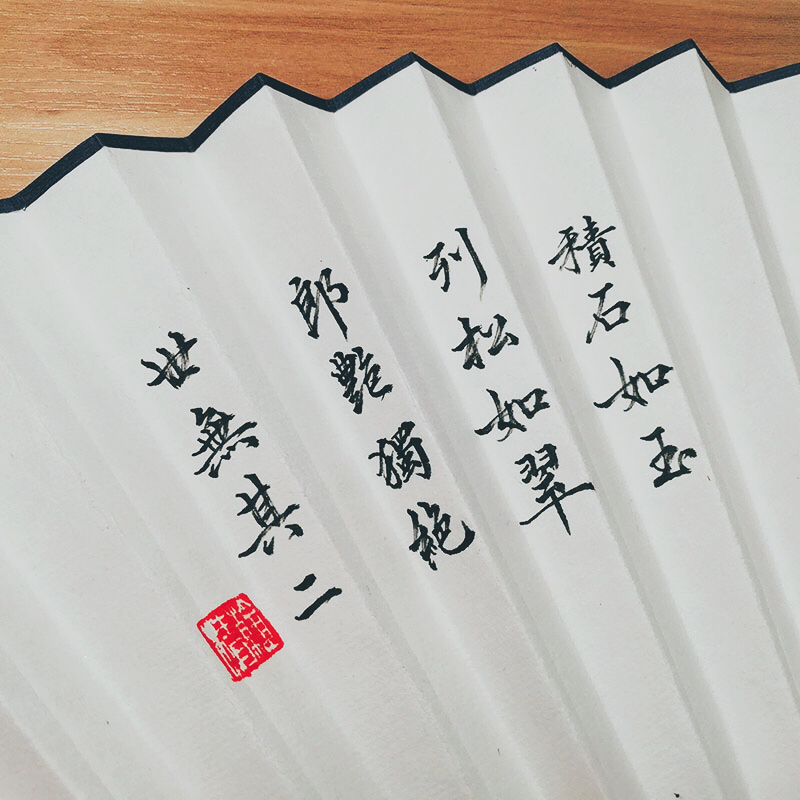 積石如玉
列松如翠
郎艷獨絕
世無其二